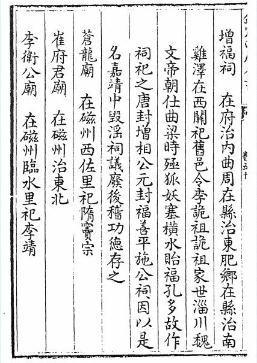 增福祠　在府治内曲周在縣治東肥鄉在縣治南
雞澤在西關祀舊邑令李詭祖詭祖家世淄川魏
文帝朝仕曲梁時殛狐妖塞橫水貽福孔多故作
祠祀之唐封增相公元封福善平施公祠因以是
名嘉靖中毁滛祠議廢後稽功徳存之
蒼龍廟　在磁州西佐里祀隋
宗
崔府君廟　在磁州治東北
李衛公廟　在磁州臨水里祀李靖